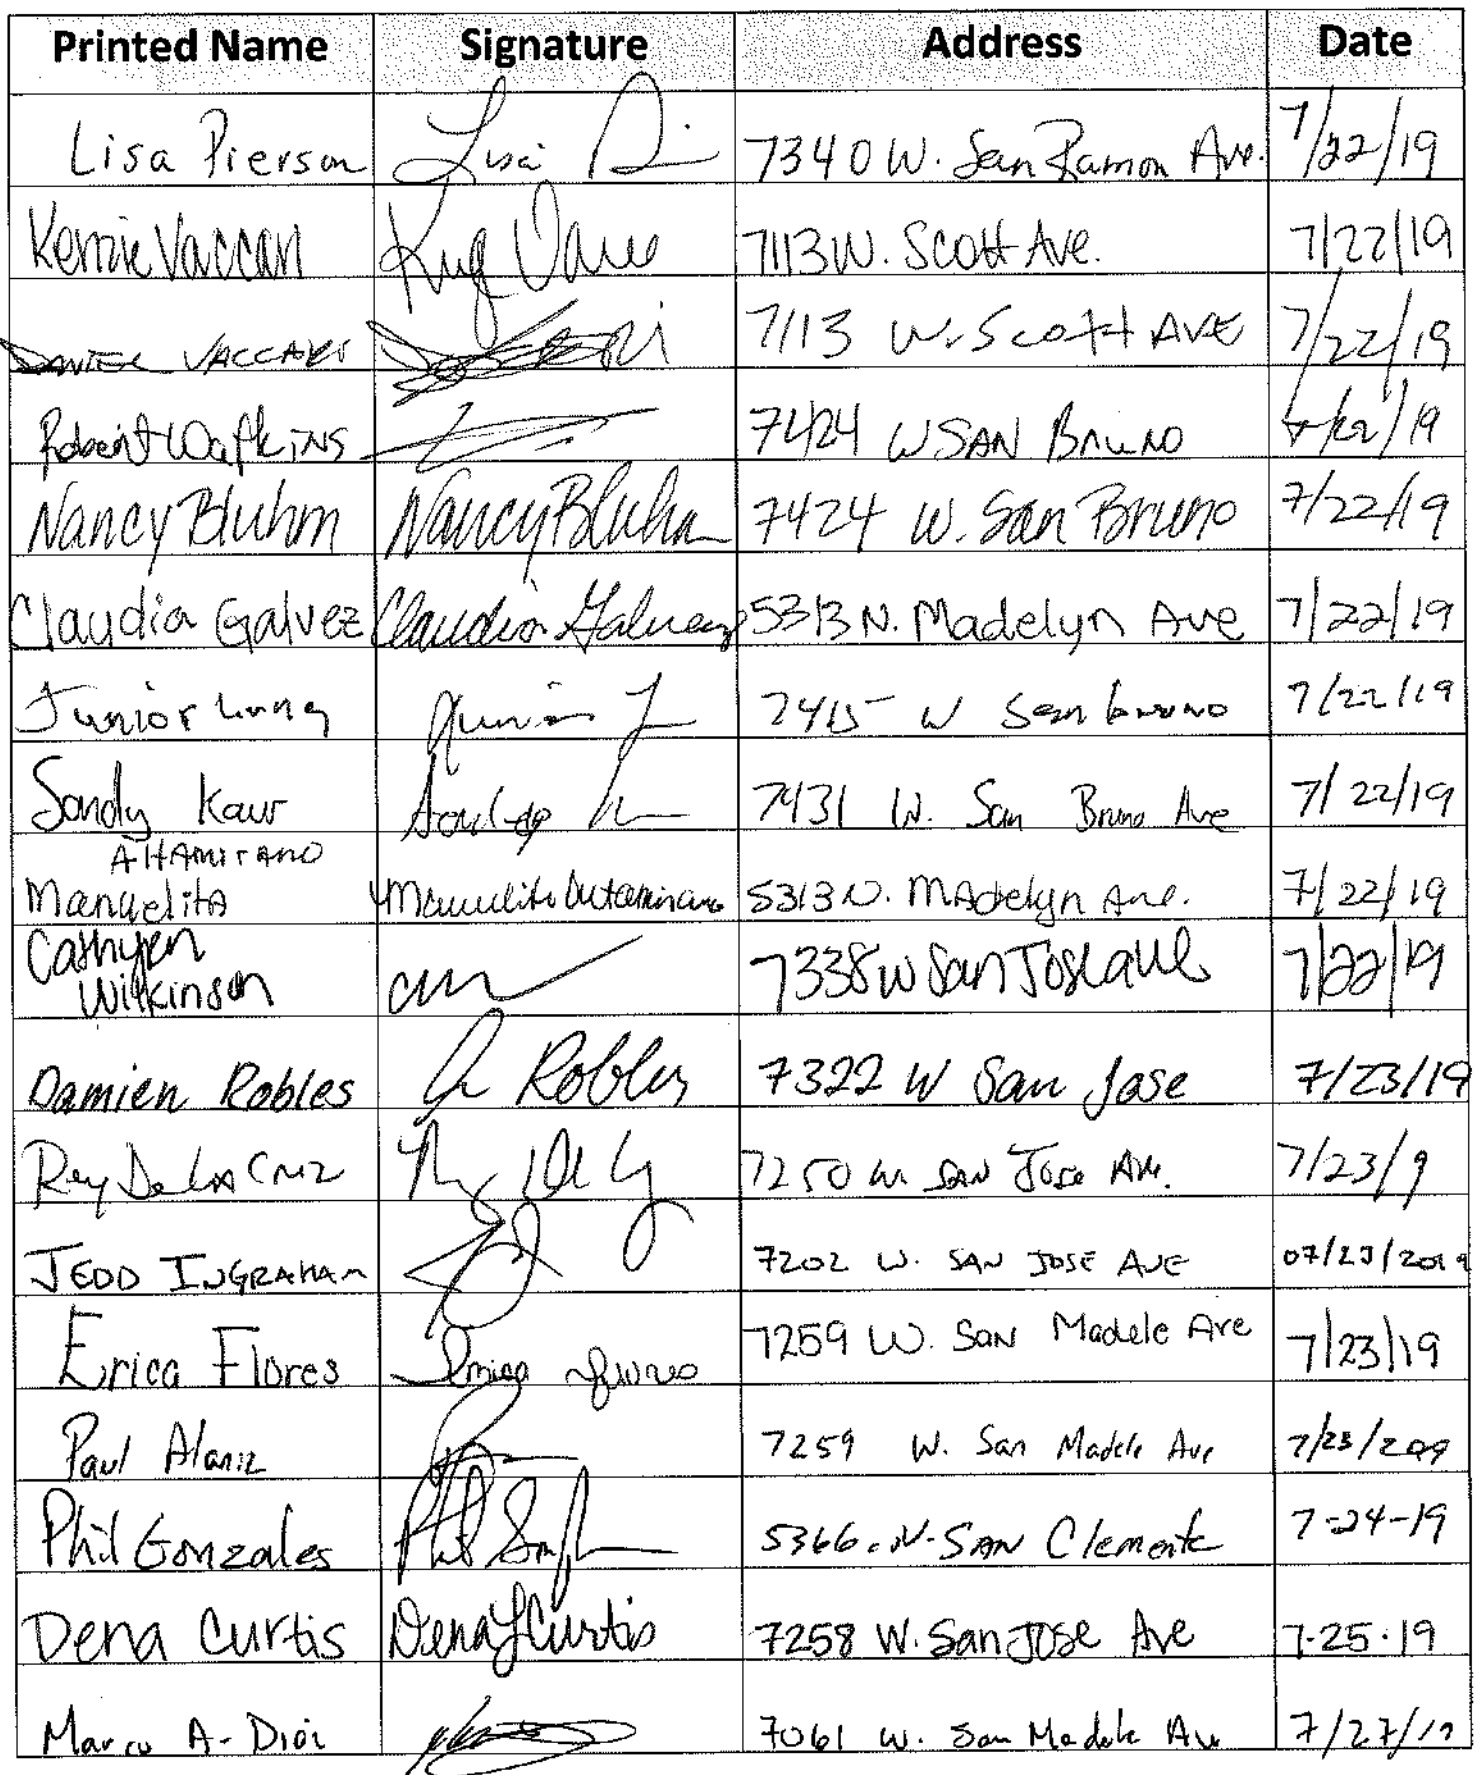 Printed Name Signature Address Date
Lisa Pierson Lisa 7340 W. San Ramon Ave. 7/22/19
Kerrie Vaccari 7113 W. Scott Ave. 7/22/19
DANIEL VACCARI 7113 W. Scott AVE 7/22/19
Robert Watkins 7424 W SAN Bruno 7/22/19
Nancy Bluhm Nancy Bluhm 7424 W. San Bruno 7/22/19
Claudia Galvez Claudia Galvez 5313 N. Madelyn Ave 7/22/19
Junior Junior 7415 W San bruno 7/22/19
Sandy Kaur 7431 W. San Bruno Ave 7/22/19
Altamirano
Manuelita Manuelita Altamirano 5313 N. Madelyn Ave. 7/22/19
Cathyren
Wilkinson 7338 W San Jose ave 7/22/19
Damien Robles Robles 7322 W San Jose 7/23/19
Rey De La Cruz 7250 W. SAN Jose Ave. 7/23/9
JEDD INGRAHAM 7202 W. SAN JOSE AVE 07/23/2019
Erica Flores Erica Flores 7259 W. San Madele Ave 7/23/19
Paul Alaniz 7259 W. San Madele Ave 7/23/2019
Phil Gonzales Phil 5366 N. SAN Clemente 7-24-19
Dena Curtis Dena L Curtis 7258 W. San Jose Ave 7-25-19
Marco A- 7061 W. San Madele Ave 7/27/19